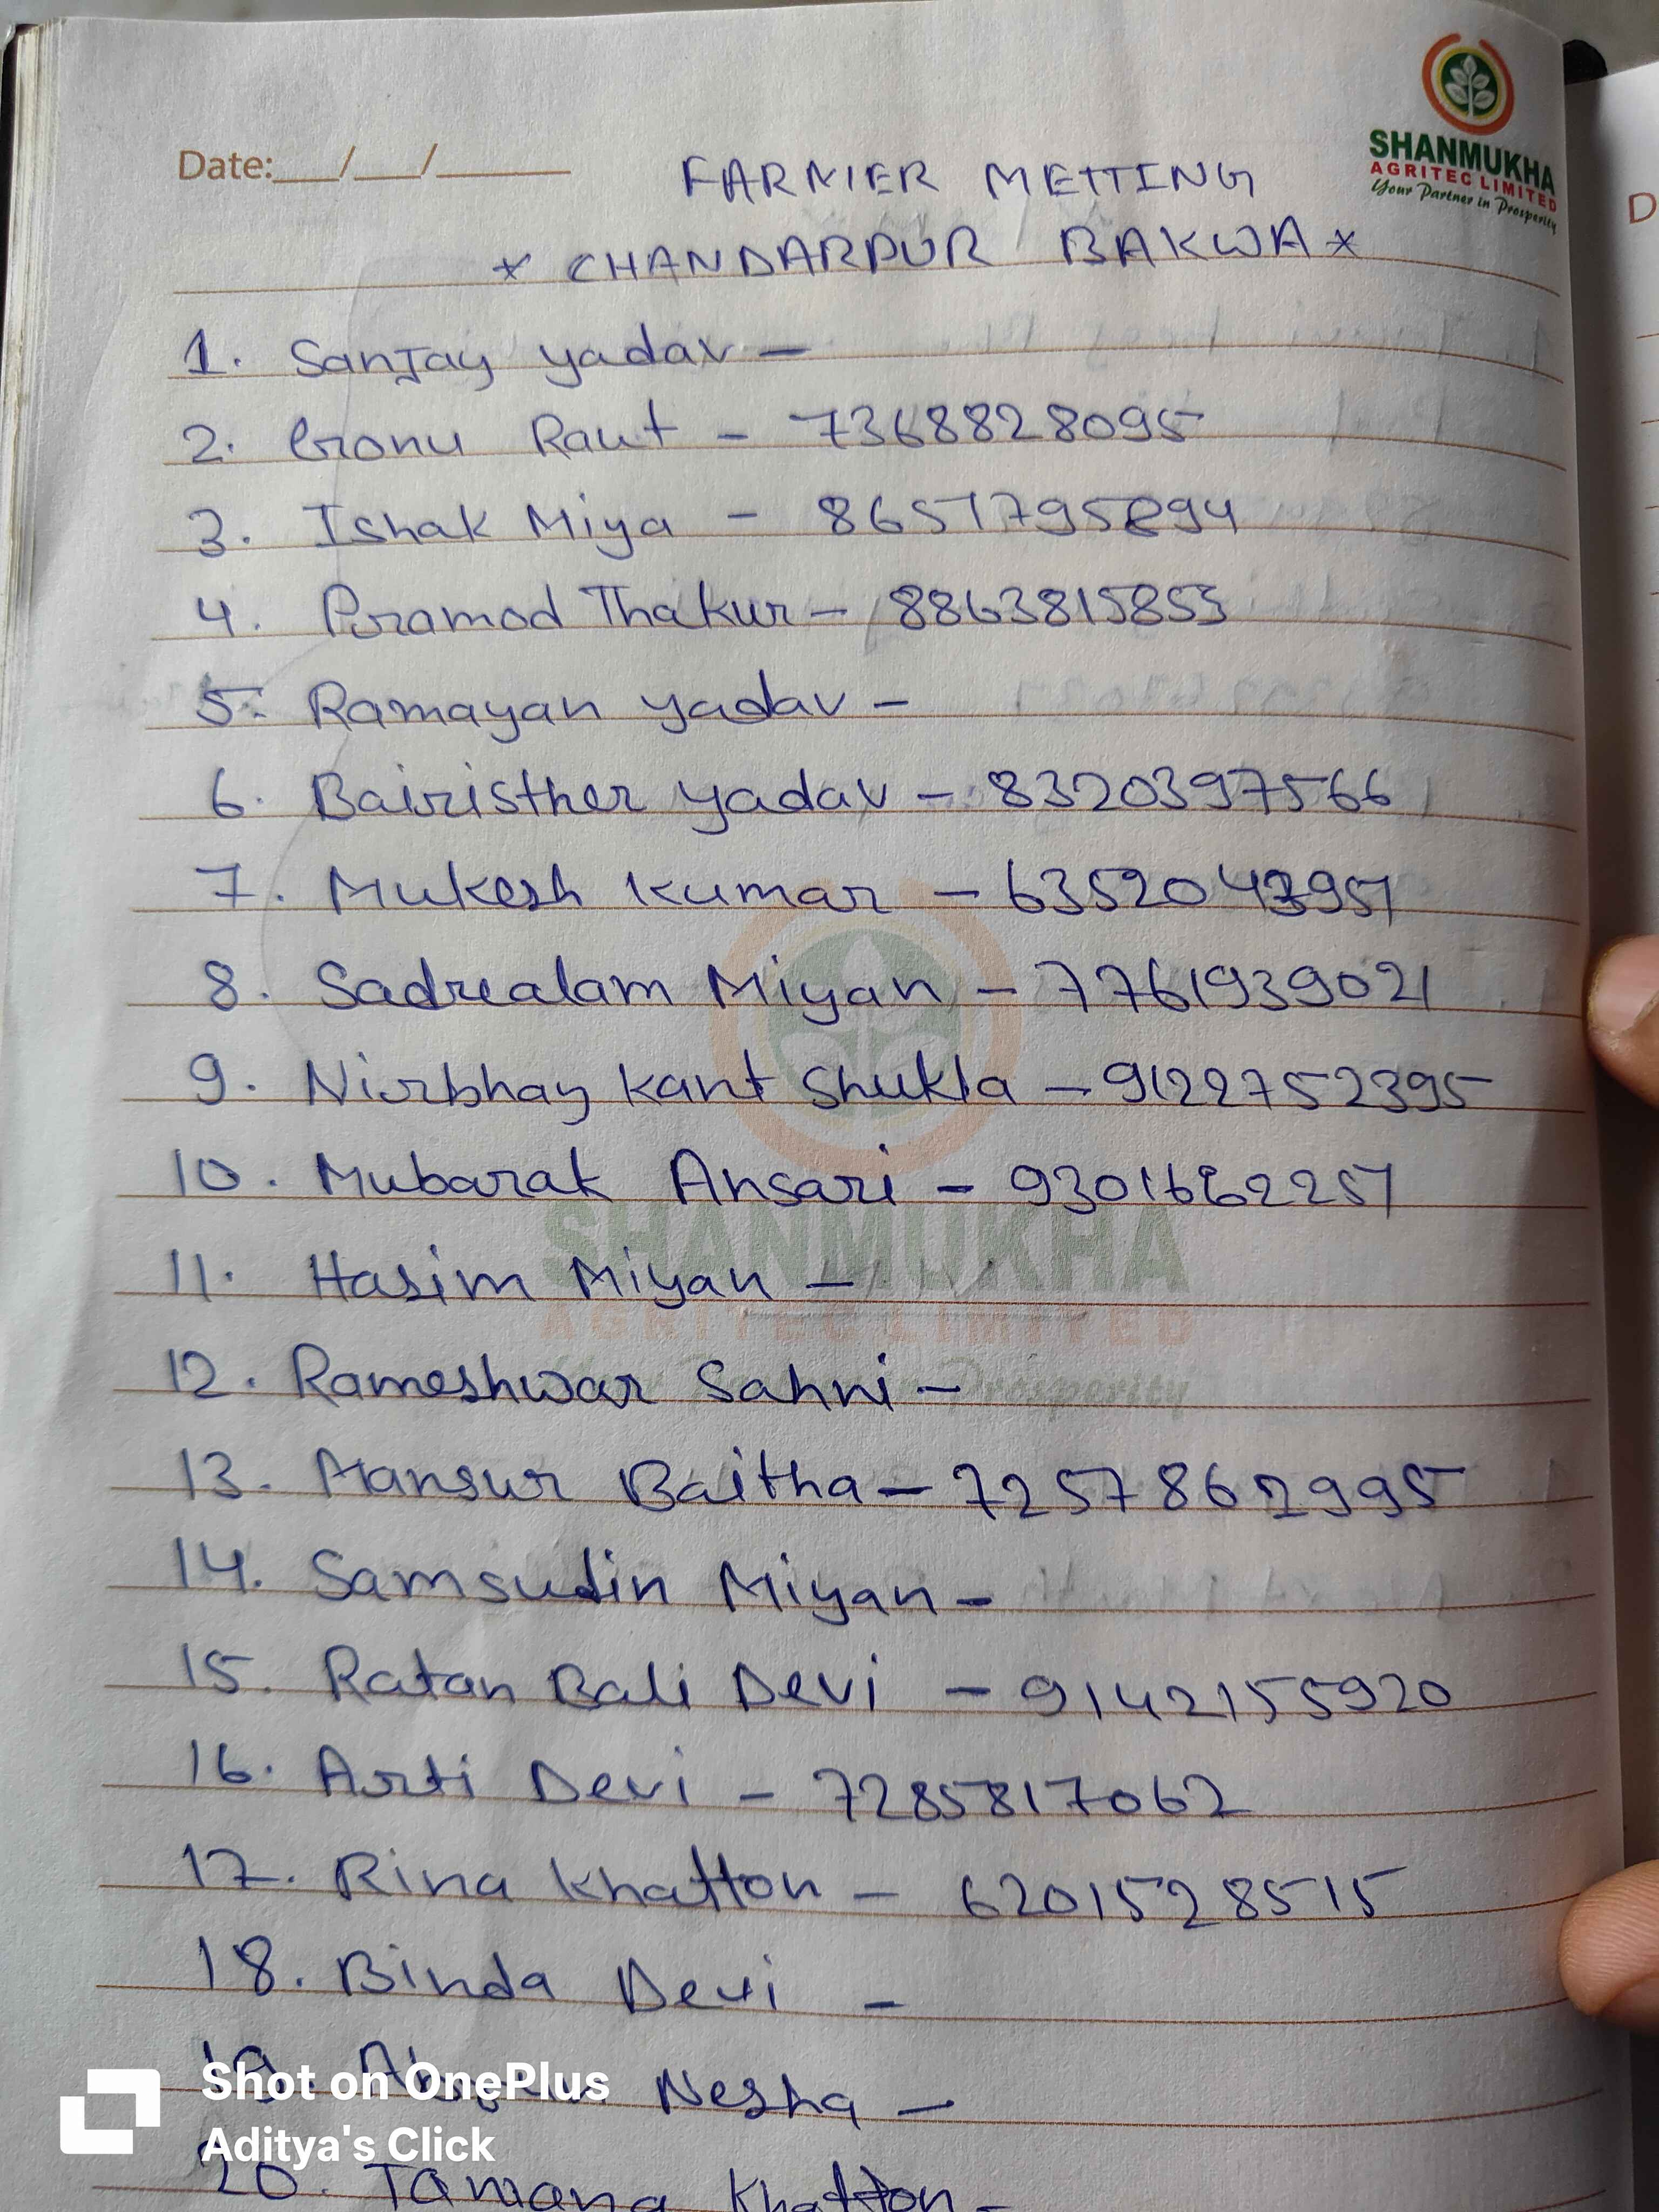 SHANMUKHA
AGRITEC LIMITED
Your Partner in Prosperity
Date:___/___/______
FARMER METTING
* CHANDARPUR BAKWA *
1. Sanjay yadav -
2. Gronu Raut - 7368828095
3. Ishak Miya - 8651795894
4. Pramod Thakur - 8863815853
5. Ramayan yadav -
6. Bairisther yadav - 8320397566
7. Mukesh Kumar -
8. Sadrealam Miyan - 7761939021
9. Nirbhay Kant Shukla - 9122752395
10. Mubarak Ansari -
11. Hasim Miyan -
12. Rameshwar Sahni -
13. Mansur Baitha - 7257862995
14. Samsudin Miyan -
15. Ratan Bali Devi - 9142155920
16. Arti Devi - 7285817062
17. Rina Khatton - 6201528515
18. Binda Devi -
19. Nesha -
20. Tamana Khatton -
SHANMUKHA
AGRITEC LIMITED
Prosperity
Shot on OnePlus
Aditya's Click